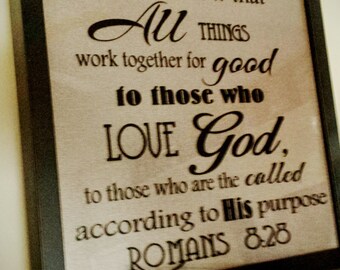 that
All THINGS
work together for good
to those who
LOVE God,
to those who are the called
according to His purpose
ROMANS 8:28